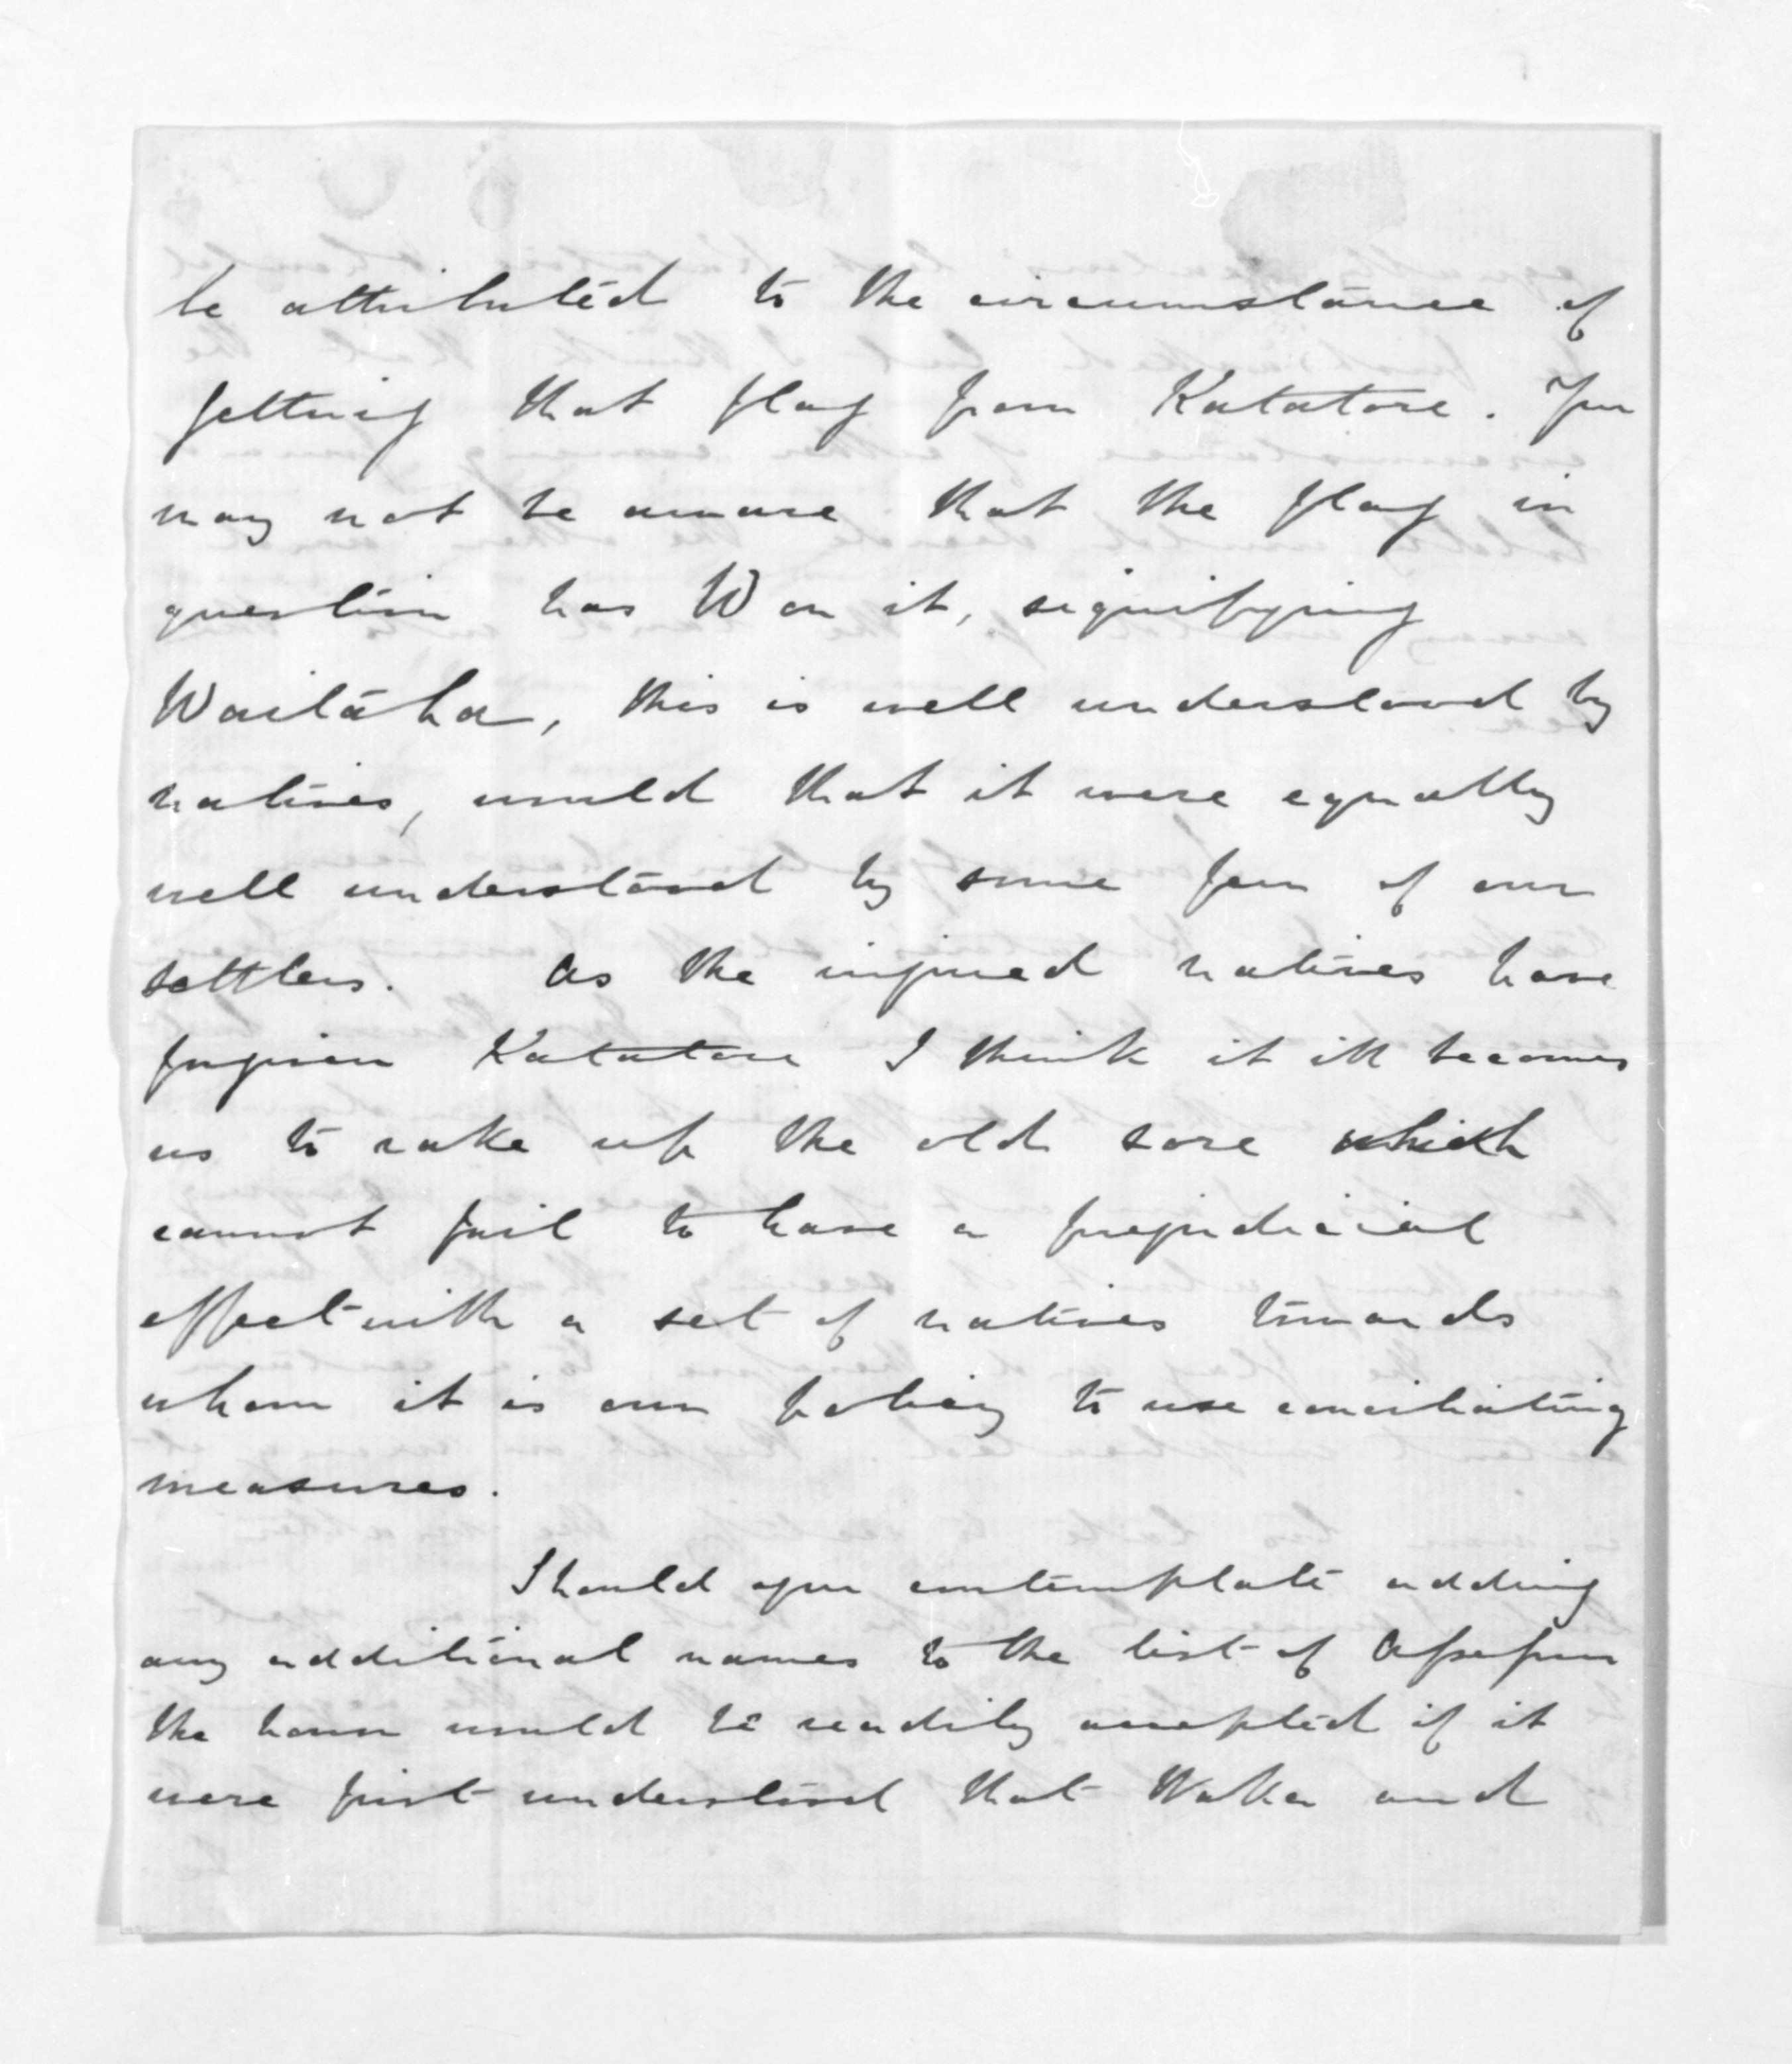 be attributed to the circumstance of
getting that flag from Katatore. You
may not be aware that the flag in
question has W on it, signifying
Waitáha, this is well understood by
natives, would that it were equally
well understood by some few of our
settlers. As the injured natives have
forgiven Katatore I think it ill becomes
us to rake up the old sore which
cannot fail to have a prejudicial
effect with a set of natives towards
whom it is our policy to use conciliating
measures.
Should you contemplate adding
any additional names to the list of Assessors
the honor would be readily accepted if it
were first understood that Waka and